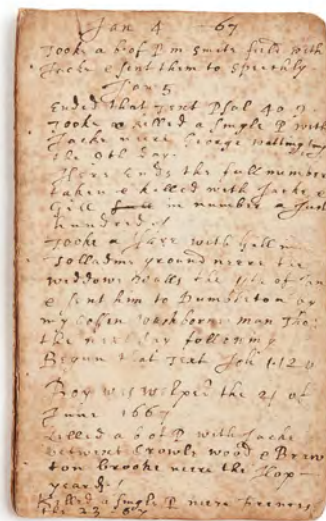 Jan 4 - 67
Tooke a b of P in Smite field with
Jacke & sent them to Spicthly
Jan 5
Ended that Text Psal 40 2.
Tooke & killed a single P with
Jacke neere George
the 9th day.
Here Ends the full number
taken & killed with Jacke &
Gill in number a Just
hundred
Tooke a Hare with Gill in
ground neere the
widdowe Walls the of Jan
& sent him to Dumbleton by
my Cosen Washborne man Tho:
the next day following
Begun that Text Joh 1.12
Roy was whelped the 21 of
June 1667
Killed a b of P with Jacke
betwixt Crowle wood & Brew
ton brooke neere the Hop-
yards
Killed a single P neere
the 23 67